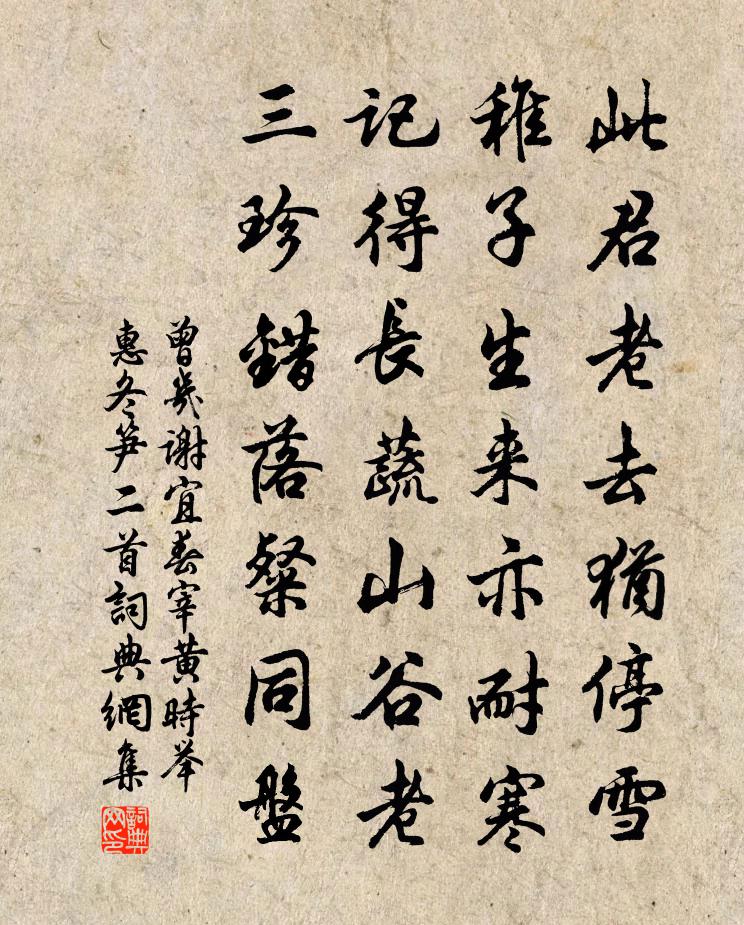 此君老去猶停雪
稚子生来亦耐寒
記得長蔬山谷老
三珍錯落粲同盤
曾幾謝宜春宰黄時举
惠冬笋二首詞典網集
詞典
网印